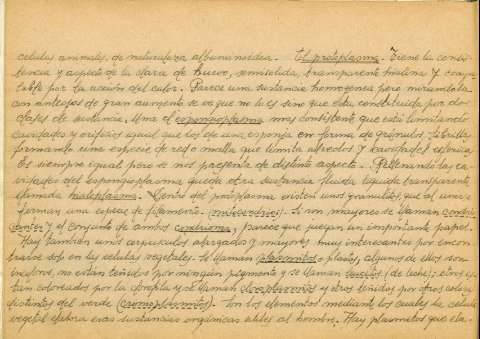 celulas animales, de naturaleza albuminoidea. El protoplasma. Tiene la consis-
tencia y aspecto de la clara de huevo, semisolida, transparente hialina y coagu-
lable por la accion del calor. Parece una sustancia homogenea pero mirandola
con anteojos de gran aumento se ve que no lo es sino que esta constituida por dos
clases de sustancia. Una el espongioplasma mas consistente que está limitando
cavidades y orificios igual que los de una esponja en forma de gránulos
formando una especie de red o malla que limita alveolos y cavidades
Es siempre igual pero se nos presenta de distinto aspecto. Rellenando las ca-
vidades del espongioplasma queda otra sustancia fluida liquida transparente
llamada hialoplasma. Dentro del protoplasma existen unos granulitos que al unirse
forman una especie de filamento (mitocondrias). Si son mayores se llaman condri-
y el conjunto de ambos condrioma, parece que juegan un importante papel.
Hay tambien unos corpusculos alargados y mayores muy interesantes por encon-
trarse solo en las celulas vegetales. Se llaman plasmitos o plastos, algunos de ellos son
incoloros, no estan teñidos por ningun pigmento y se llaman leucitos (de leche); otros es-
tan coloreados por la clorofila y se llaman cloroplasmitos y otros teñidos por otros colores
distintos del verde (cromoplasmitos). Son los elementos mediante los cuales la celula
vegetal elabora esas sustancias orgánicas utiles al hombre. Hay plasmitos que ela-